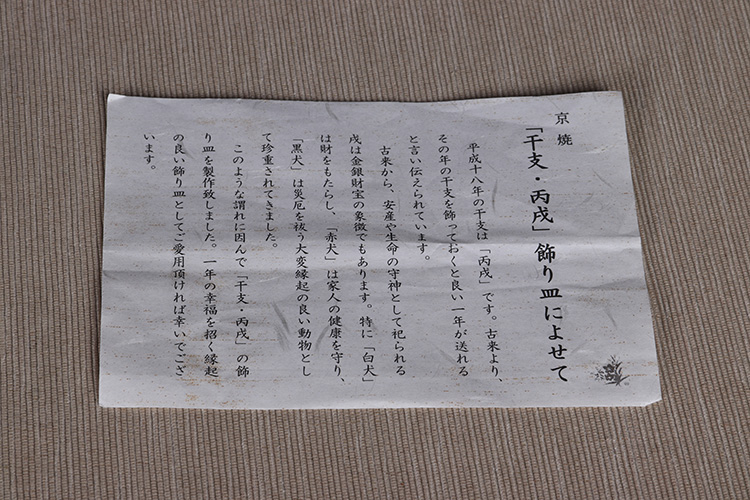 京焼
「干支・丙戌」飾り皿によせて
平成十八年の干支は「丙戌」です。古来より、
その年の干支を飾っておくと良い一年が送れる
と言い伝えられています。
古来から、安産や生命の守神として祀られる
戌は金銀財宝の象徴でもあります。特に「白犬」
は財をもたらし、「赤犬」は家人の健康を守り、
「黒犬」は災厄を祓う大変縁起の良い動物とし
て珍重されてきました。
このような謂れに因んで「干支・丙戌」の飾
り皿を製作致しました。一年の幸福を招く縁起
の良い飾り皿としてご愛用頂ければ幸いでござ
います。